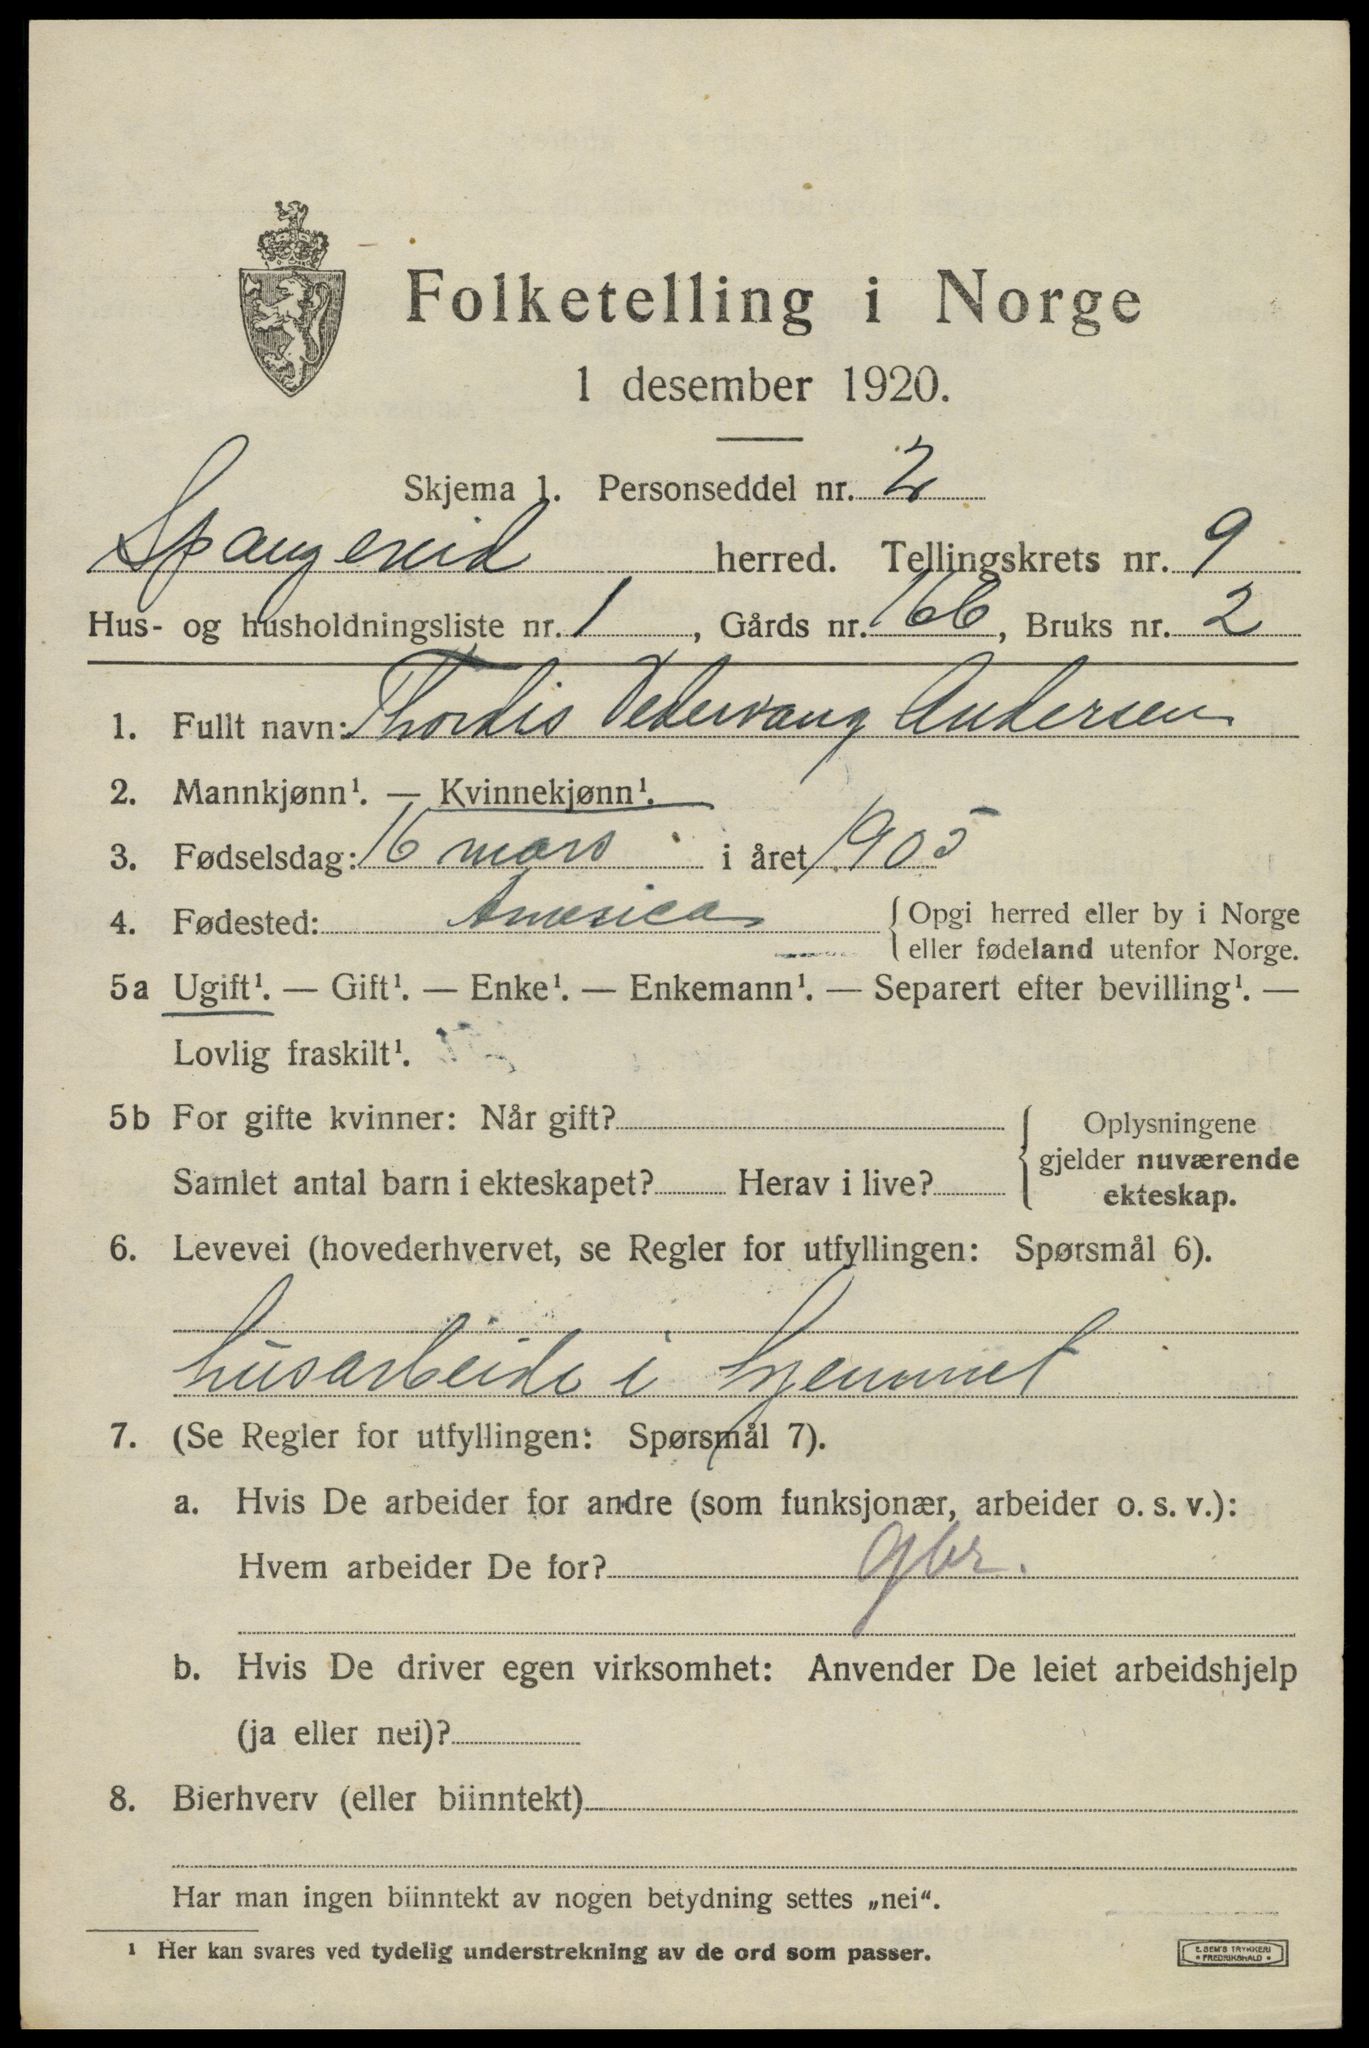 Folketelling i Norge
1 desember 1920.
Skjema 1. Personseddel nr. 2
Spangereid herred. Tellingskrets nr. 9
Hus- og husholdningsliste nr. 1, Gårds nr. 166, Bruks nr. 2
1. Fullt navn: Thordis Vedervang Andersen
2. Mannkjønn¹. — Kvinnekjønn¹.
3. Fødselsdag: 16 mars i året 1905
4. Fødested: America { Opgi herred eller by i Norge
eller fødeland utenfor Norge.
5a Ugift¹. — Gift¹. — Enke¹. — Enkemann¹. — Separert efter bevilling¹. —
Lovlig fraskilt¹.
5b For gifte kvinner: Når gift? { Oplysningene
gjelder nuværende
Samlet antal barn i ekteskapet? Herav i live? ekteskap.
6. Levevei (hovederhvervet, se Regler for utfyllingen: Spørsmål 6).
husarbeide i hjemmet
7. (Se Regler for utfyllingen: Spørsmål 7).
a. Hvis De arbeider for andre (som funksjonær, arbeider o. s. v.):
Hvem arbeider De for? gbr.
b. Hvis De driver egen virksomhet: Anvender De leiet arbeidshjelp
(ja eller nei)?
8. Bierhverv (eller biinntekt)
Har man ingen biinntekt av nogen betydning settes „nei“.
¹ Her kan svares ved tydelig understrekning av de ord som passer.
E. SEM'S TRYKKERI
* FREDRIKSHALD *